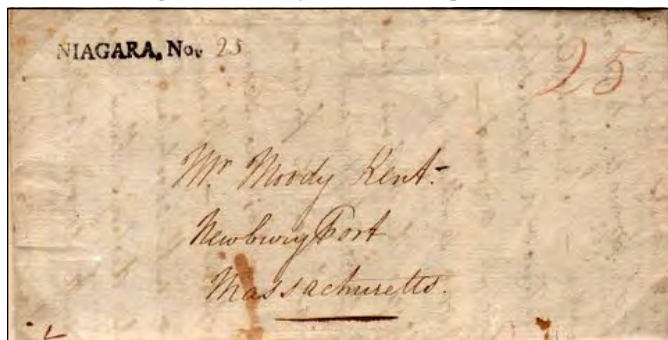 NIAGARA, Nov 25
25
Mr Moody Kent
Newbury Port
Massachusetts.